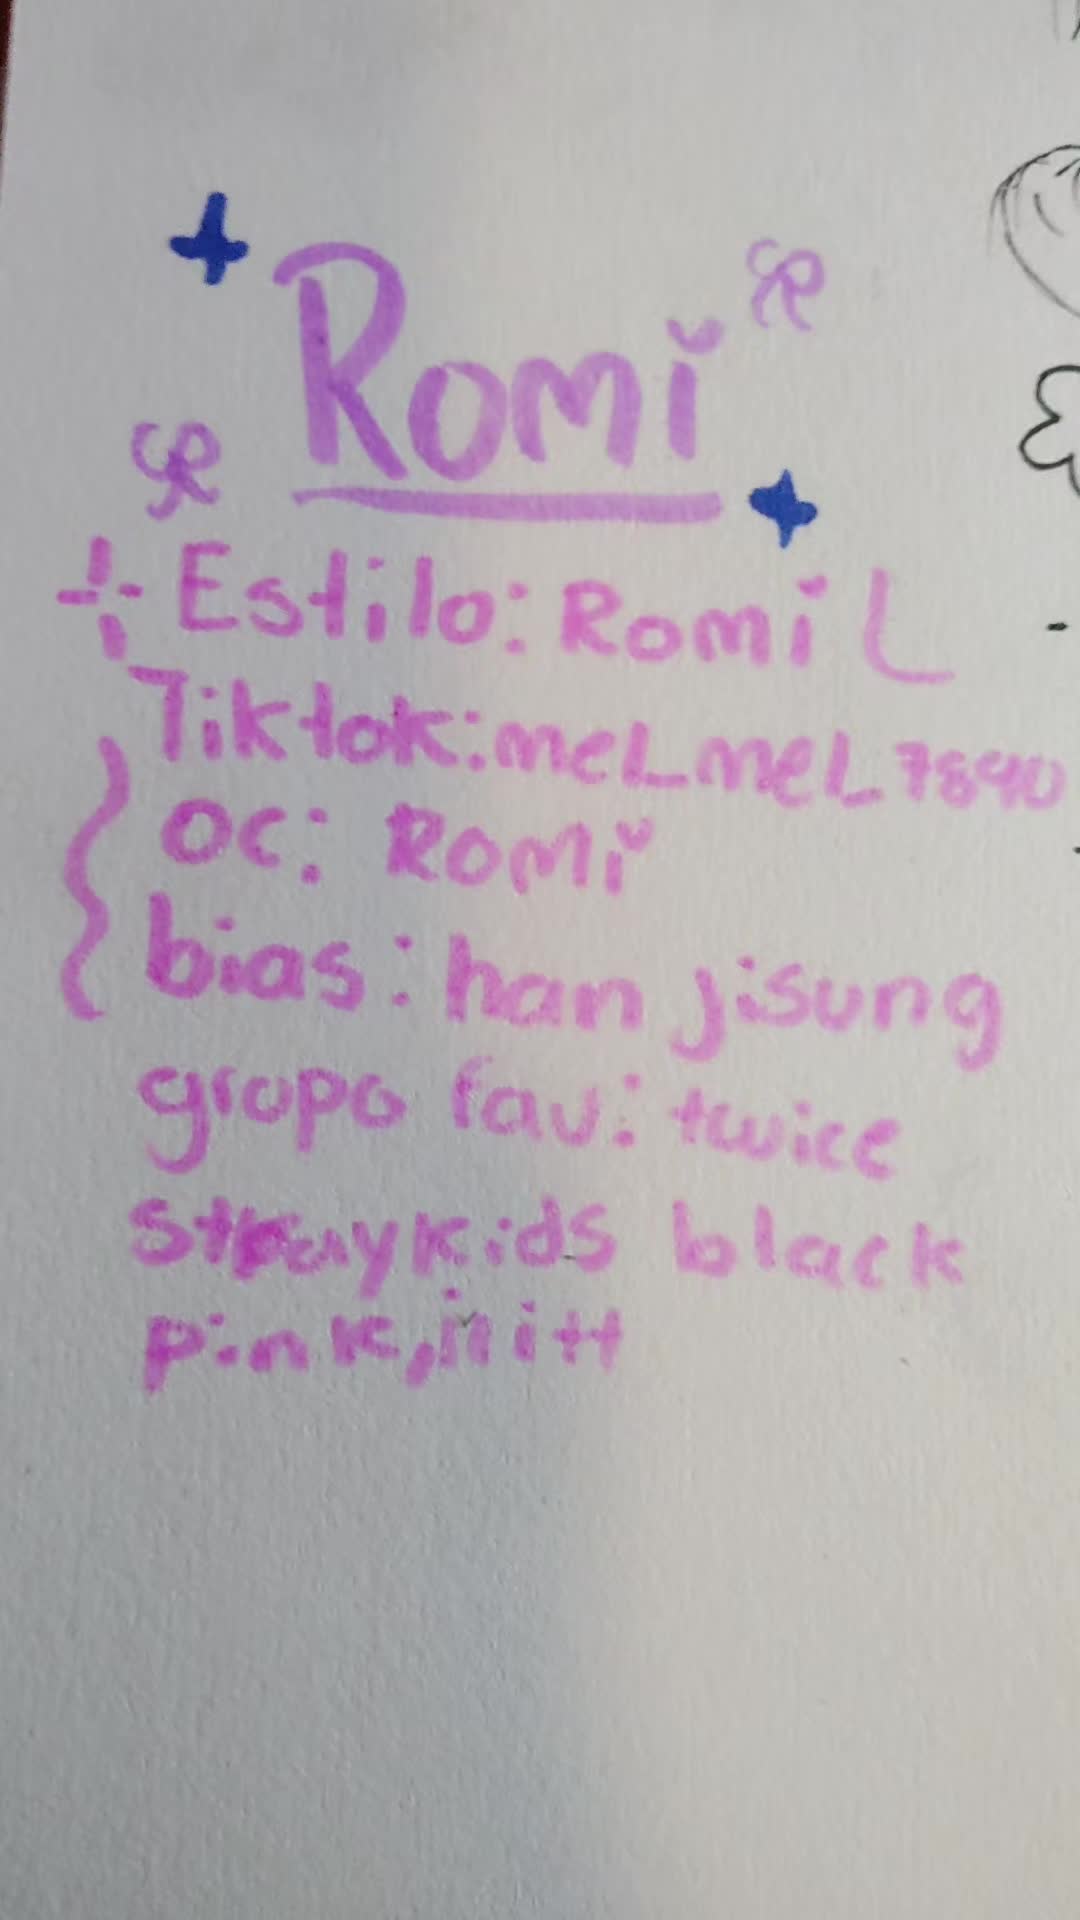 Romi
Estilo: Romi L
Tiktok: meLmeL7890
OC: Romi
bias: han jisung
grupo fav: twice
straykids black
pink,